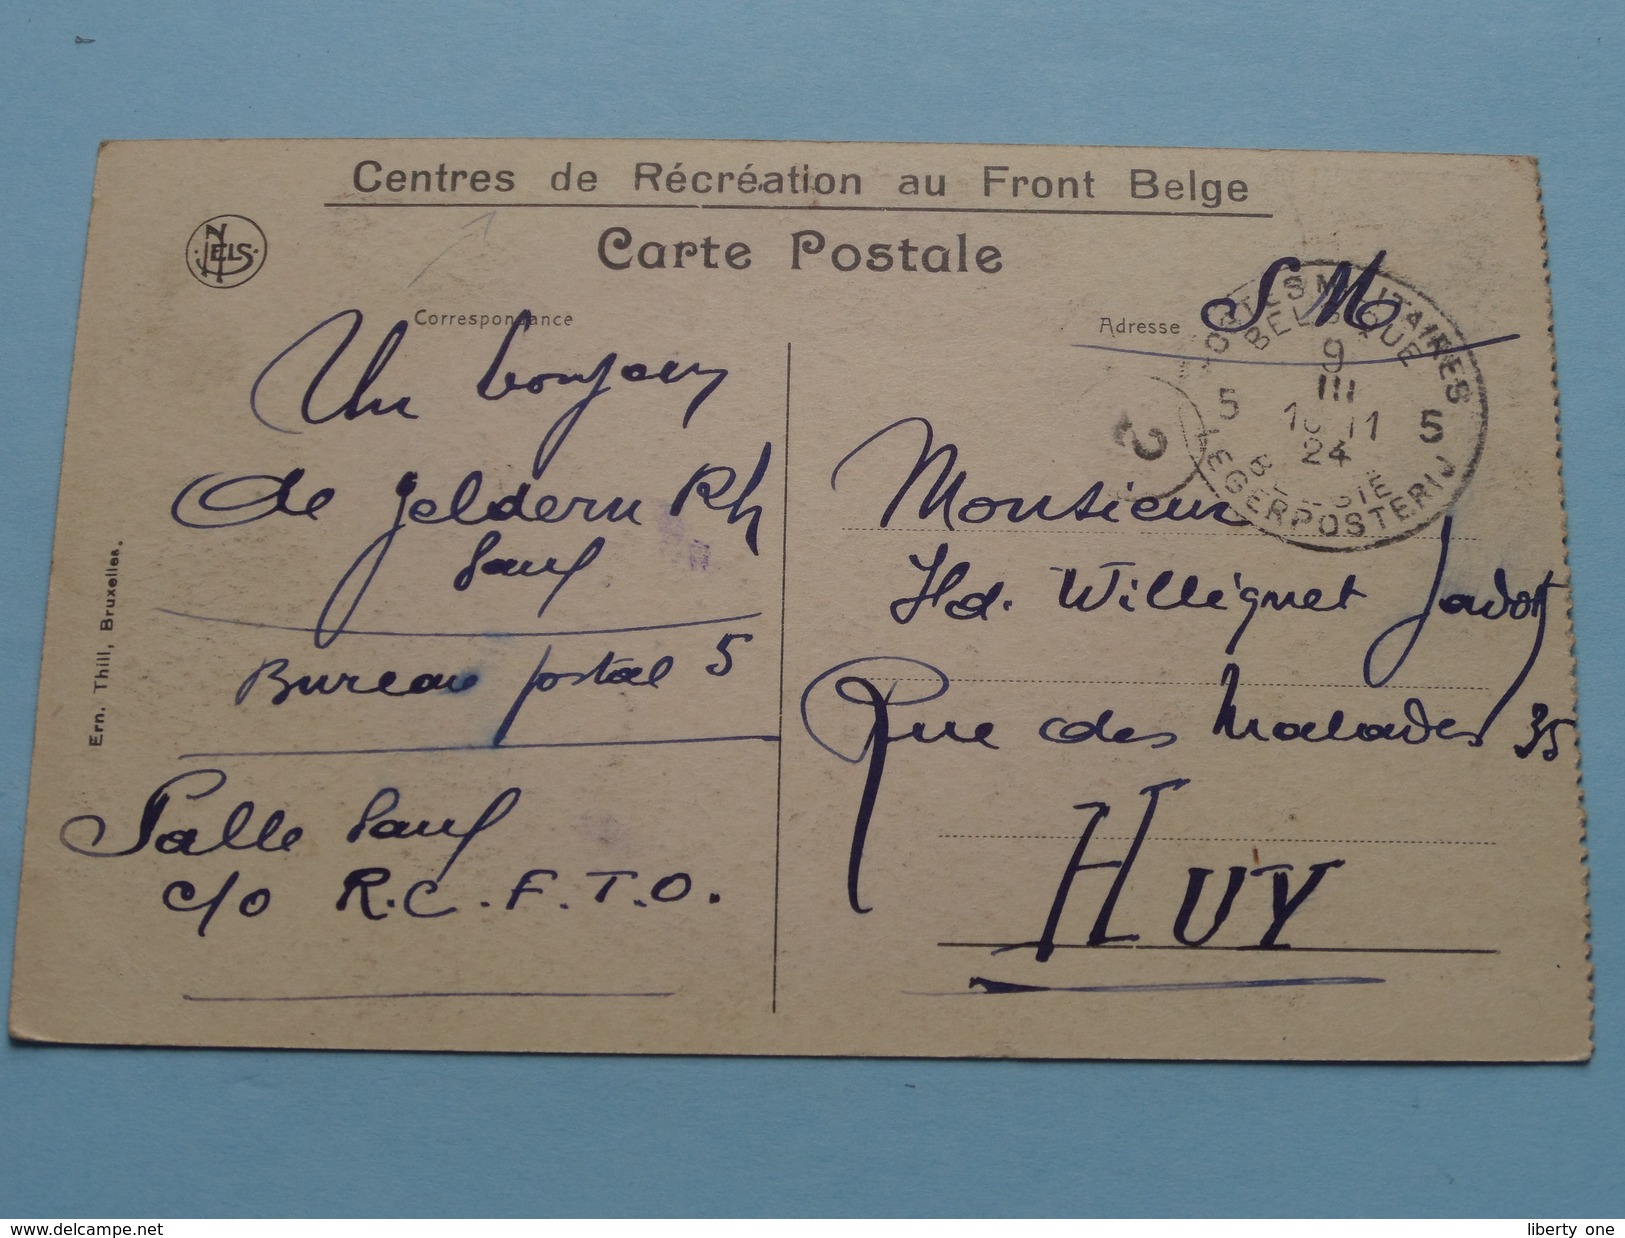 Centres de Récréation au Front Belge
NELS
Carte Postale
Correspondance
Adresse
S M
POSTES MILITAIRES
BELGIQUE
9
III
5 10-11 5
24
BELGIE
LEGERPOSTERIJ
2
Un bonjour
de Geldern Rh
Monsieur
Hd. Willignet Jadot
Bureau postal 5
Rue des Malades 35
Ern. Thill, Bruxelles.
c/o R.C.F.T.O.
HUY
www.delcampe.net
liberty_one